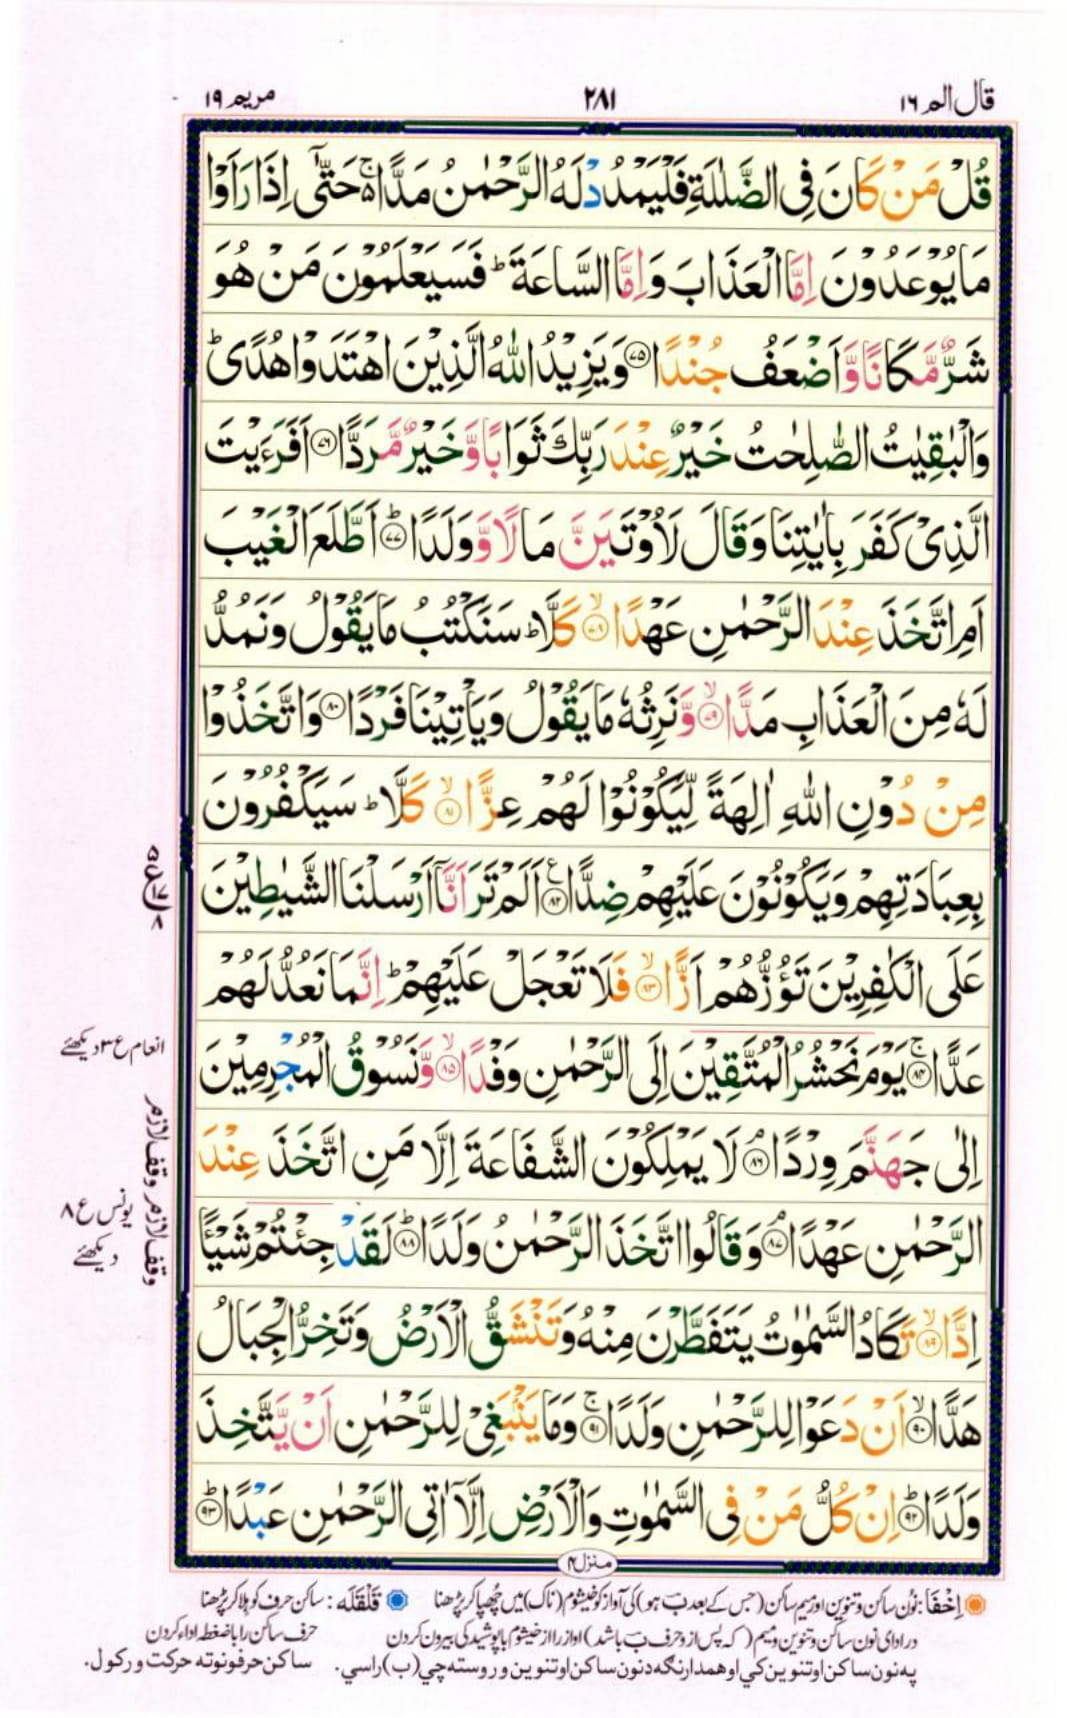 قال الم ١٦
٢٨١
مريم ١٩
قُلْ مَنْ كَانَ فِي الضَّلٰلَةِ فَلْيَمْدُدْ لَهُ الرَّحْمٰنُ مَدًّا ۵ۚ حَتّٰٓى اِذَا رَاَوْا
مَا يُوْعَدُوْنَ اِمَّا الْعَذَابَ وَاِمَّا السَّاعَةَ ؕ فَسَيَعْلَمُوْنَ مَنْ هُوَ
شَرٌّ مَّكَانًا وَّاَضْعَفُ جُنْدًا ﴿۷۵﴾ وَيَزِيْدُ اللّٰهُ الَّذِيْنَ اهْتَدَوْا هُدًى ؕ
وَالْبٰقِيٰتُ الصّٰلِحٰتُ خَيْرٌ عِنْدَ رَبِّكَ ثَوَابًا وَّخَيْرٌ مَّرَدًّا ﴿۷۶﴾ اَفَرَءَيْتَ
الَّذِيْ كَفَرَ بِاٰيٰتِنَا وَقَالَ لَاُوْتَيَنَّ مَالًا وَّوَلَدًا ﴿۷۷﴾ؕ اَطَّلَعَ الْغَيْبَ
اَمِ اتَّخَذَ عِنْدَ الرَّحْمٰنِ عَهْدًا ﴿۷۸﴾ۙ كَلَّا ؕ سَنَكْتُبُ مَا يَقُوْلُ وَنَمُدُّ
لَهٗ مِنَ الْعَذَابِ مَدًّا ﴿۷۹﴾ۙ وَّنَرِثُهٗ مَا يَقُوْلُ وَيَاْتِيْنَا فَرْدًا ﴿۸۰﴾ وَاتَّخَذُوْا
مِنْ دُوْنِ اللّٰهِ اٰلِهَةً لِّيَكُوْنُوْا لَهُمْ عِزًّا ﴿۸۱﴾ۙ كَلَّا ؕ سَيَكْفُرُوْنَ
بِعِبَادَتِهِمْ وَيَكُوْنُوْنَ عَلَيْهِمْ ضِدًّا ﴿۸۲﴾ۧ اَلَمْ تَرَ اَنَّآ اَرْسَلْنَا الشَّيٰطِيْنَ
عَلَى الْكٰفِرِيْنَ تَؤُزُّهُمْ اَزًّا ﴿۸۳﴾ۙ فَلَا تَعْجَلْ عَلَيْهِمْ ؕ اِنَّمَا نَعُدُّ لَهُمْ
عَدًّا ﴿۸۴﴾ۚ يَوْمَ نَحْشُرُ الْمُتَّقِيْنَ اِلَى الرَّحْمٰنِ وَفْدًا ﴿۸۵﴾ۙ وَّنَسُوْقُ الْمُجْرِمِيْنَ
اِلٰى جَهَنَّمَ وِرْدًا ﴿۸۶﴾ۘ لَا يَمْلِكُوْنَ الشَّفَاعَةَ اِلَّا مَنِ اتَّخَذَ عِنْدَ
الرَّحْمٰنِ عَهْدًا ﴿۸۷﴾ۘ وَقَالُوا اتَّخَذَ الرَّحْمٰنُ وَلَدًا ﴿۸۸﴾ؕ لَقَدْ جِئْتُمْ شَيْـًٔا
اِدًّا ﴿۸۹﴾ۙ تَكَادُ السَّمٰوٰتُ يَتَفَطَّرْنَ مِنْهُ وَتَنْشَقُّ الْاَرْضُ وَتَخِرُّ الْجِبَالُ
هَدًّا ﴿۹۰﴾ۙ اَنْ دَعَوْا لِلرَّحْمٰنِ وَلَدًا ﴿۹۱﴾ۚ وَمَا يَنْۢبَغِيْ لِلرَّحْمٰنِ اَنْ يَّتَّخِذَ
وَلَدًا ﴿۹۲﴾ؕ اِنْ كُلُّ مَنْ فِي السَّمٰوٰتِ وَالْاَرْضِ اِلَّآ اٰتِى الرَّحْمٰنِ عَبْدًا ﴿۹۳﴾ؕ
منزل ۴
۵
ع
۸
انعام ع ۳ دیکھئے
وقف لازم وقف لازم
یونس ع ۸
دیکھئے
اِخْفَا: نُون ساکن و تنوین اور میم ساکن (جس کے بعد بَ ہو) کی آواز کو خیشوم (ناک) میں چُھپا کر پڑھنا قَلْقَلَه: ساکن حرف کو ہلا کر پڑھنا
در ادای نون ساکن و تنوین و میم (که پس از و حرف بَ باشد) آواز را از خیشوم با پوشیدگی بیرون کردن حرف ساکن را با ضغطه اداء کردن
په نون ساکن او تنوین کي او همدارنگه د نون ساکن او تنوین وروسته چي (ب) راسي. ساکن حرفونو ته حرکت ورکول.